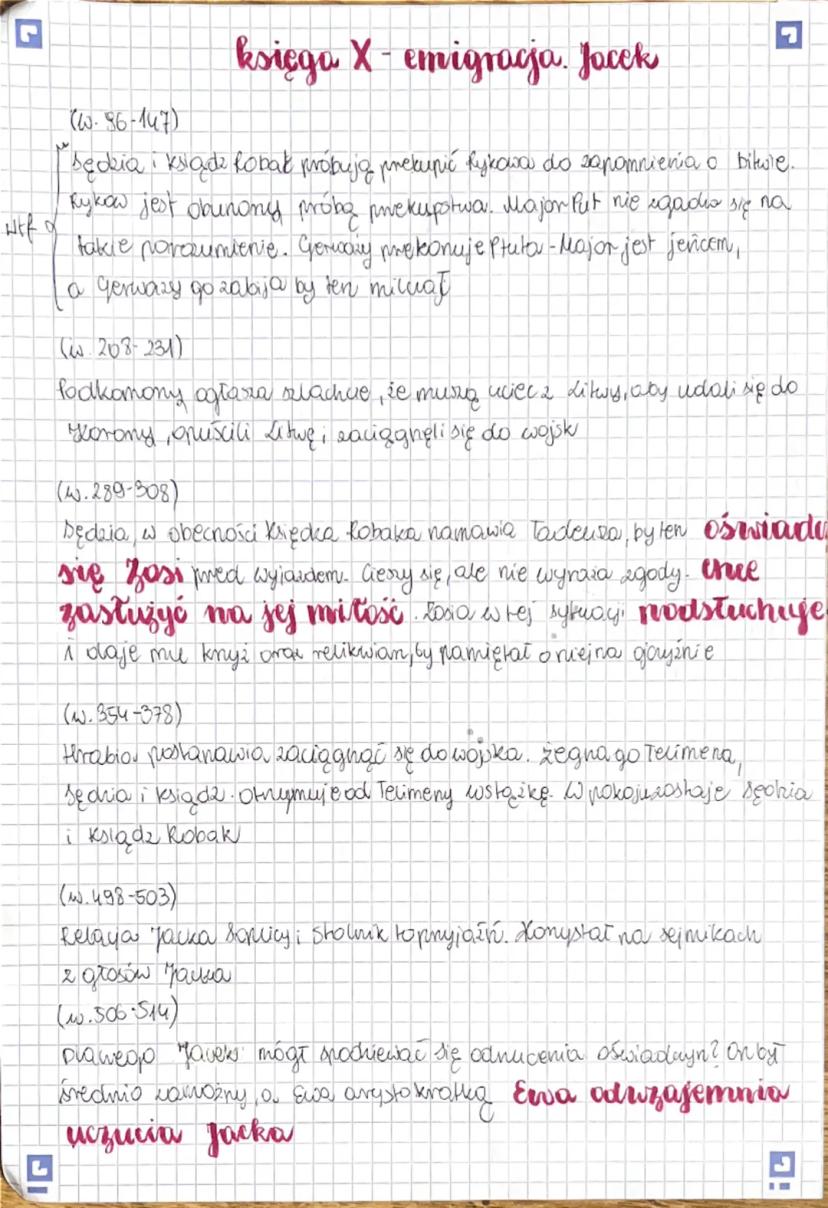 księga X - emigracja. Jacek
(w. 96-147)
Sędzia i ksiądz Robak próbują przekupić Rykowa do zapomnienia o bitwie.
Rykow jest oburzony próbą przekupstwa. Major Put nie zgadza się na
wtf
takie porozumienie. Gerwazy przekonuje Płuta - Major jest jeńcem,
a Gerwazy go zabija by ten milczał
(w. 208-231)
Podkomorzy ogłasza szlachcie, że muszą uciec z Litwy, aby udali się do
Korony, opuścili Litwę i zaciągnęli się do wojsk
(w. 289-308)
Sędzia, w obecności Księdza Robaka namawia Tadeusza, by ten oświadcz
się Zosi przed wyjazdem. Cieszy się, ale nie wyraża zgody. Chce
zasłużyć na jej miłość. Zosia w tej sytuacji podsłuchuje
i daje mu krzyż oraz relikwiarz, by pamiętał o niej na ojczyźnie
(w. 354-378)
Hrabia postanawia zaciągnąć się do wojska. Żegna go Telimena,
Sędzia i ksiądz. Otrzymuje od Telimeny wstążkę. W pokoju zostaje Sędzia
i Ksiądz Robak
(w. 498-503)
Relacja Jacka Soplicy i Stolnik to przyjaźń. Korzystał na sejmikach
z głosów Jacka
(w. 506-514)
Dlaczego Jacek mógł spodziewać się odrzucenia oświadczyn? On był
średnio zamożny, a Ewa arystokratką Ewa odwzajemnia
uczucia Jacka